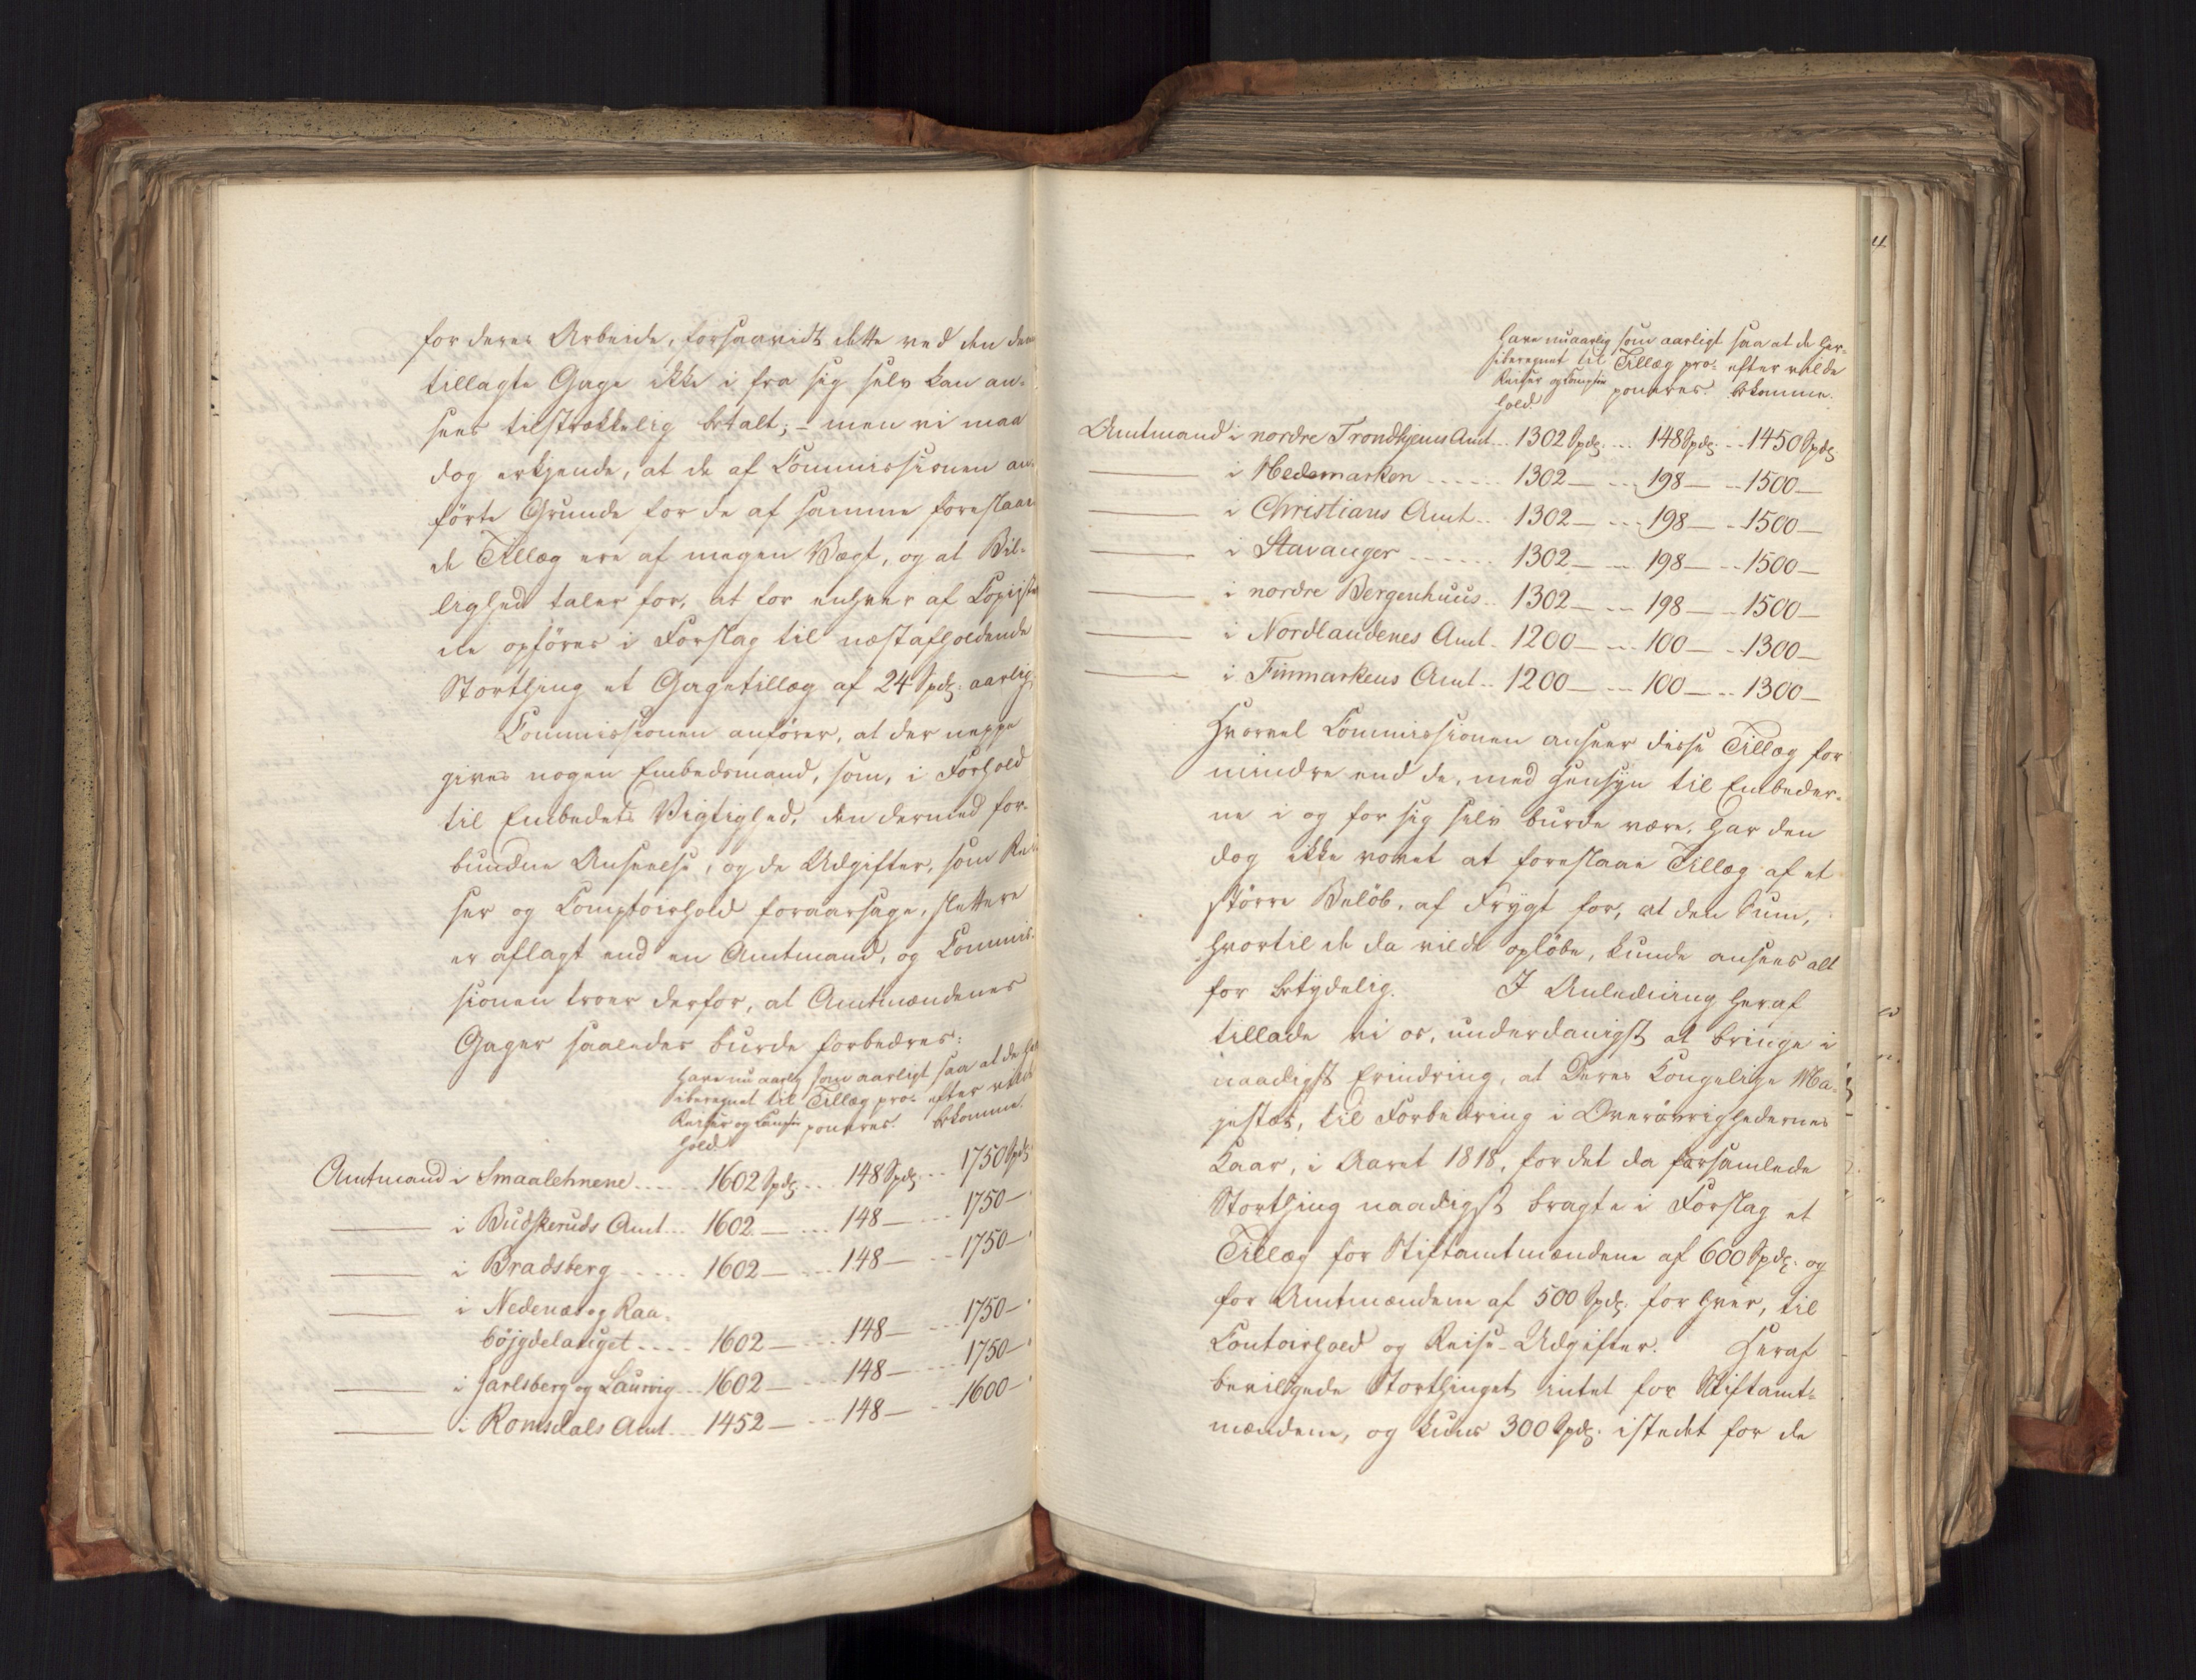 for deres Arbeide, forsaavidt dette ved den dem
tillagte Gage ikke i fra sig selv kan an-
sees tilstrækkelig betalt; - men vi maa
dog erkjende, at de af Commissionen an-
førte Grunde for de af samme foreslaae
de Tillæg ere af megen Vægt, og at Bil-
lighed taler for, at for enhver af Copiste
ne opføres i Forslag til næstafholdende
Storthing et Gagetillæg af 24 Spd. aarlig.
Commissionen anfører, at der neppe
gives nogen Embedsmand, som, i Forhold
til Embedets Vigtighed, den dermed for-
bundne Anseelse, og de Udgifter, som Rei-
ser og Comptoirhold foraarsage, slettere
er aflagt end en Amtmand, og Commis-
sionen troer derfor, at Amtmændenes
Gager saaledes burde forbedres:
Have nu aarlig som aarligt saa at de her
iberegnet til Tillæg pro- efter vilde
Reiser og Comptoir poneres. bekomme.
hold
Amtmand i Smaalehnene ..... 1602 Spd. .. 148 Spd. .. 1750 Spd.
—— i Budskeruds Amt ... 1602 — ... 148 — ... 1750 —
—— i Bradsberg ..... 1602 — ... 148 — ... 1750 —
—— i Nedenæs og Raa-
böjgdelauget .... 1602 — ... 148 — ... 1750 —
—— i Jarlsberg og Laurvig ... 1602 — ... 148 — ... 1750 —
—— i Romsdals Amt ... 1452 — ... 148 — ... 1600 —
4
Have nu aarlig som aarligt saa at de her-
iberegnet til Tillæg pro- efter vilde
Reiser og Comptoir poneres. bekomme.
hold.
Amtmand i nordre Trondhjems Amt .. 1302 Spd. ... 148 Spd. .. 1450 Spd.
—— i Hedemarken ...... 1302 — ... 198 — .. 1500 —
—— i Christians Amt .. 1302 — ... 198 — .. 1500 —
—— i Stavanger ...... 1302 — ... 198 — .. 1500 —
—— i nordre Bergenhuus .. 1302 — ... 198 — .. 1500 —
—— i Nordlandenes Amt . 1200 — ... 100 — .. 1300 —
—— i Finmarkens Amt .. 1200 — ... 100 — .. 1300 —
Hvorvel Commissionen anseer disse Tillæg for
mindre end de, med Hensyn til Embeder-
ne i og for sig selv burde være, har den
dog ikke vovet at foreslaae Tillæg af et
större Belöb, af Frygt for, at den Sum,
hvortil de da vilde oplöbe, kunde ansees alt
for betydelig. I Anledning heraf
tillade vi os, underdanigst at bringe i
naadigst Erindring, at Deres Kongelige Ma-
jestæt, til Forbedring i Overövrighedernes
Kaar, i Aaret 1818, for det da forsamlede
Storthing naadigst bragte i Forslag et
Tillæg for Stiftamtmændene af 600 Spd. og
for Amtmændene af 500 Spd. for hver, til
Contoirhold og Reise-Udgifter. Heraf
bevilgede Storthinget intet for Stiftamt-
mændene, og kuns 300 Spd. istedet for de